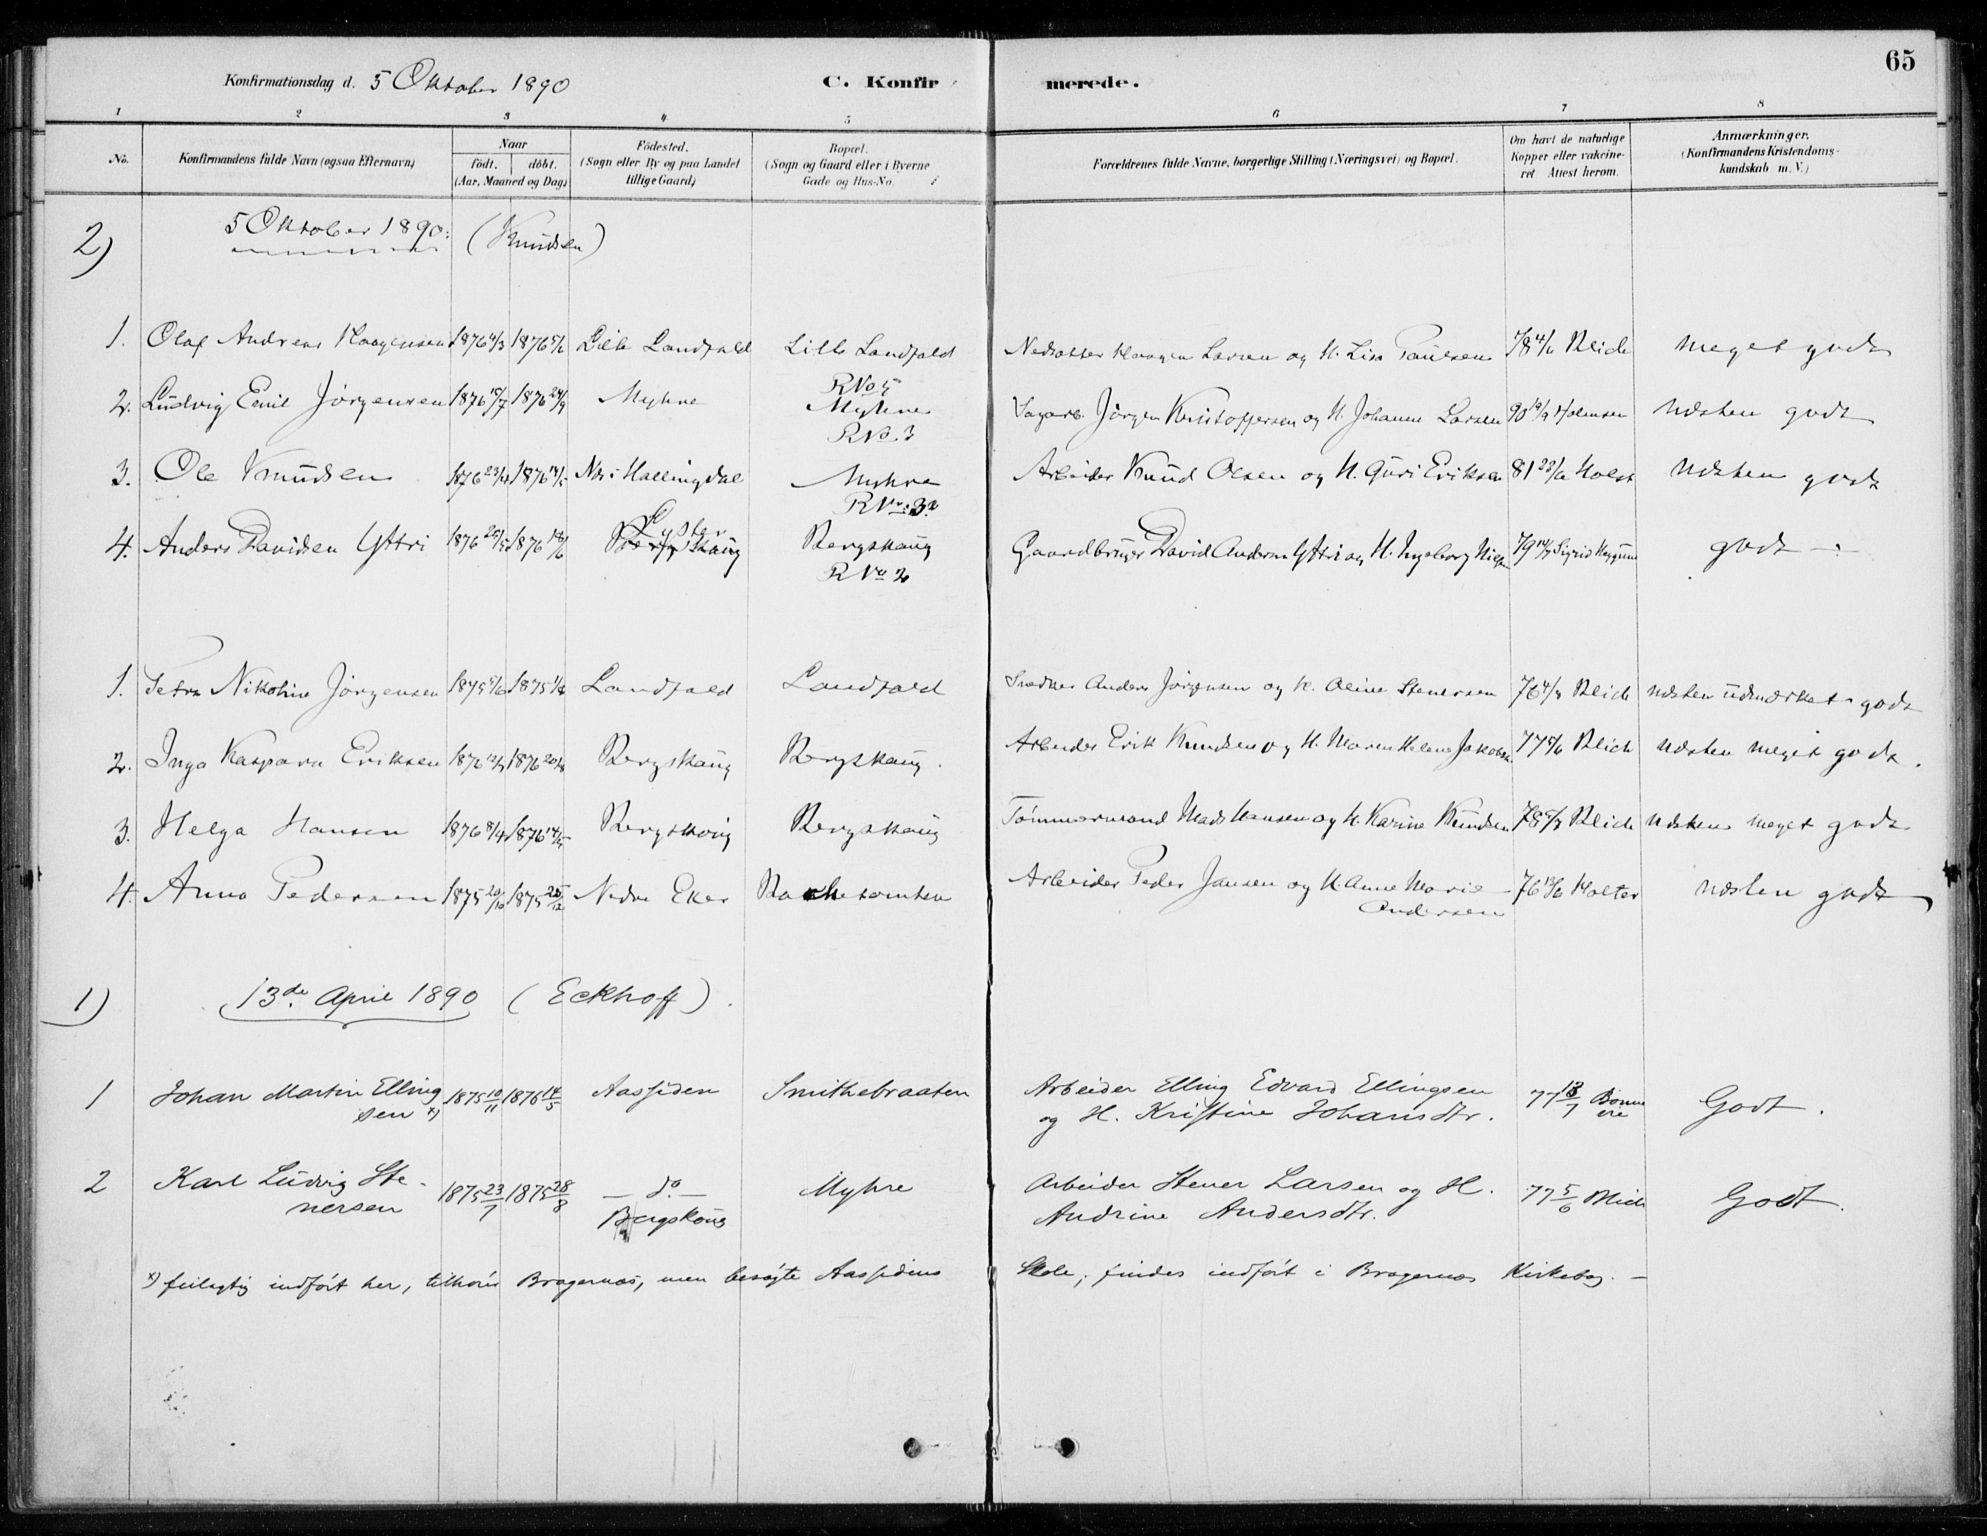 65
Konfirmationsdag d. 5 Oktober 1890 C. Konfir merede.
1 2 3 4 5 6 7 8
No. Konfirmandens fulde Navn (ogsaa Efternavn) Naar født. døbt. (Aar, Maaned og Dag) Fødested. (Sogn eller By og paa Landet tillige Gaard) Bopæl. (Sogn og Gaard eller i Byerne Gade og Hus-No. Forældrenes fulde Navne, borgerlige Stilling (Næringsvei) og Bopæl. Om havt de naturlige Kopper eller vakcineret Attest herom. Anmærkninger. (Konfirmandens Kristendomskundskab m. V.)
2) 5 Oktober 1890. (Knudsen)
1. Olaf Andreas Haagensen 1876 4/3 1876 5/6 Lille Landfald Lille Landfald R No 5 Haagen Larsen og H. Lisa Paulsen 78 4/6 Blich Meget godt
2. Ludvig Emil Jørgensen 1876 15/7 1876 24/9 Myhre Myhre R No. 3 Sagarb. Jørgen Kristoffersen og H. Johanne Larsen 90 19/9 Holmsen Næsten godt
3. Ole Knudsen 1876 23/4 1876 14/5 Næs i Hallingdal Myhre R No. 32 Arbeider Knud Olsen og H. Guri Eriksen 81 23/ Holst Næsten godt
4. Anders Davidsen Yttri 1876 25/5 1876 18/6 Lyster Bergskaug Bergskaug R No 2 Gaardbruger David Andersen Yttri og H. Ingeborg 79 14/7 Sigrid godt –:
1. Petra Nikoline Jørgensen 1875 1875 Landfald Landfald Snedker Anders Jørgensen og H. Oline Stenersen 76 4/ Blich Næsten udmærket godt
2. Inga Kaspara Eriksen 1876 1876 20/8 Bergskaug Bergskaug. Arbeider Erik Knudsen og H. Maren Helene Jakobsen 77 5/6 Blich Næsten meget godt.
3. Helga Hansen 1876 8/4 1876 14/5 Bergskaug Bergskaug Tømmermand Mads Hansen og H. Karine Knudsen 78 Blich Næsten meget godt
4. Anna Pedersen 1875 20/10 1875 25/12 Nedre Eker Arbeider Peder Jansen og H. Anne Marie Andersen 76 18/6 Holter Næsten godt
1) 13de. April 1890 (Eckhoff).
1 Johan Martin Ellingsen x) 1875 10/11 1876 14/5 Aassiden Smithebraaten Arbeider Elling Edvard Ellingsen og H. Kristine Johansdtr. 77 13/7 Godt.
2 Karl Ludvig Stenersen 1875 23/7 1875 28/8 – do. – Bergskoug Myhre Arbeider Stener Larsen og H. Andrine Andersdtr. 77 5/6 Blich Godt.
x) feilagtig indført her, tilhører Bragernæs, men besøgte Aassidens Skole; findes indført i Bragernæs Kirkebog. –